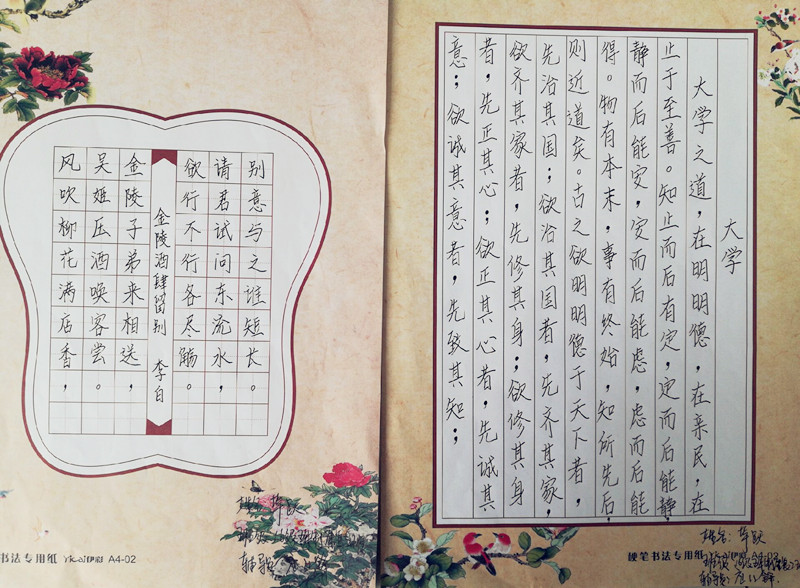 金陵酒肆留别 李白
风吹柳花满店香，
吴姬压酒唤客尝。
金陵子弟来相送，
欲行不行各尽觞。
请君试问东流水，
别意与之谁短长。
书法专用纸 A4-02
姓名
大学
大学之道，在明明德，在亲民，在
止于至善。知止而后有定，定而后能静，
静而后能安，安而后能虑，虑而后能
得。物有本末，事有终始，知所先后，
则近道矣。古之欲明明德于天下者，
先治其国；欲治其国者，先齐其家，
欲齐其家者，先修其身；欲修其身
者，先正其心；欲正其心者，先诚其
意；欲诚其意者，先致其知；
硬笔书法专用纸
姓名：